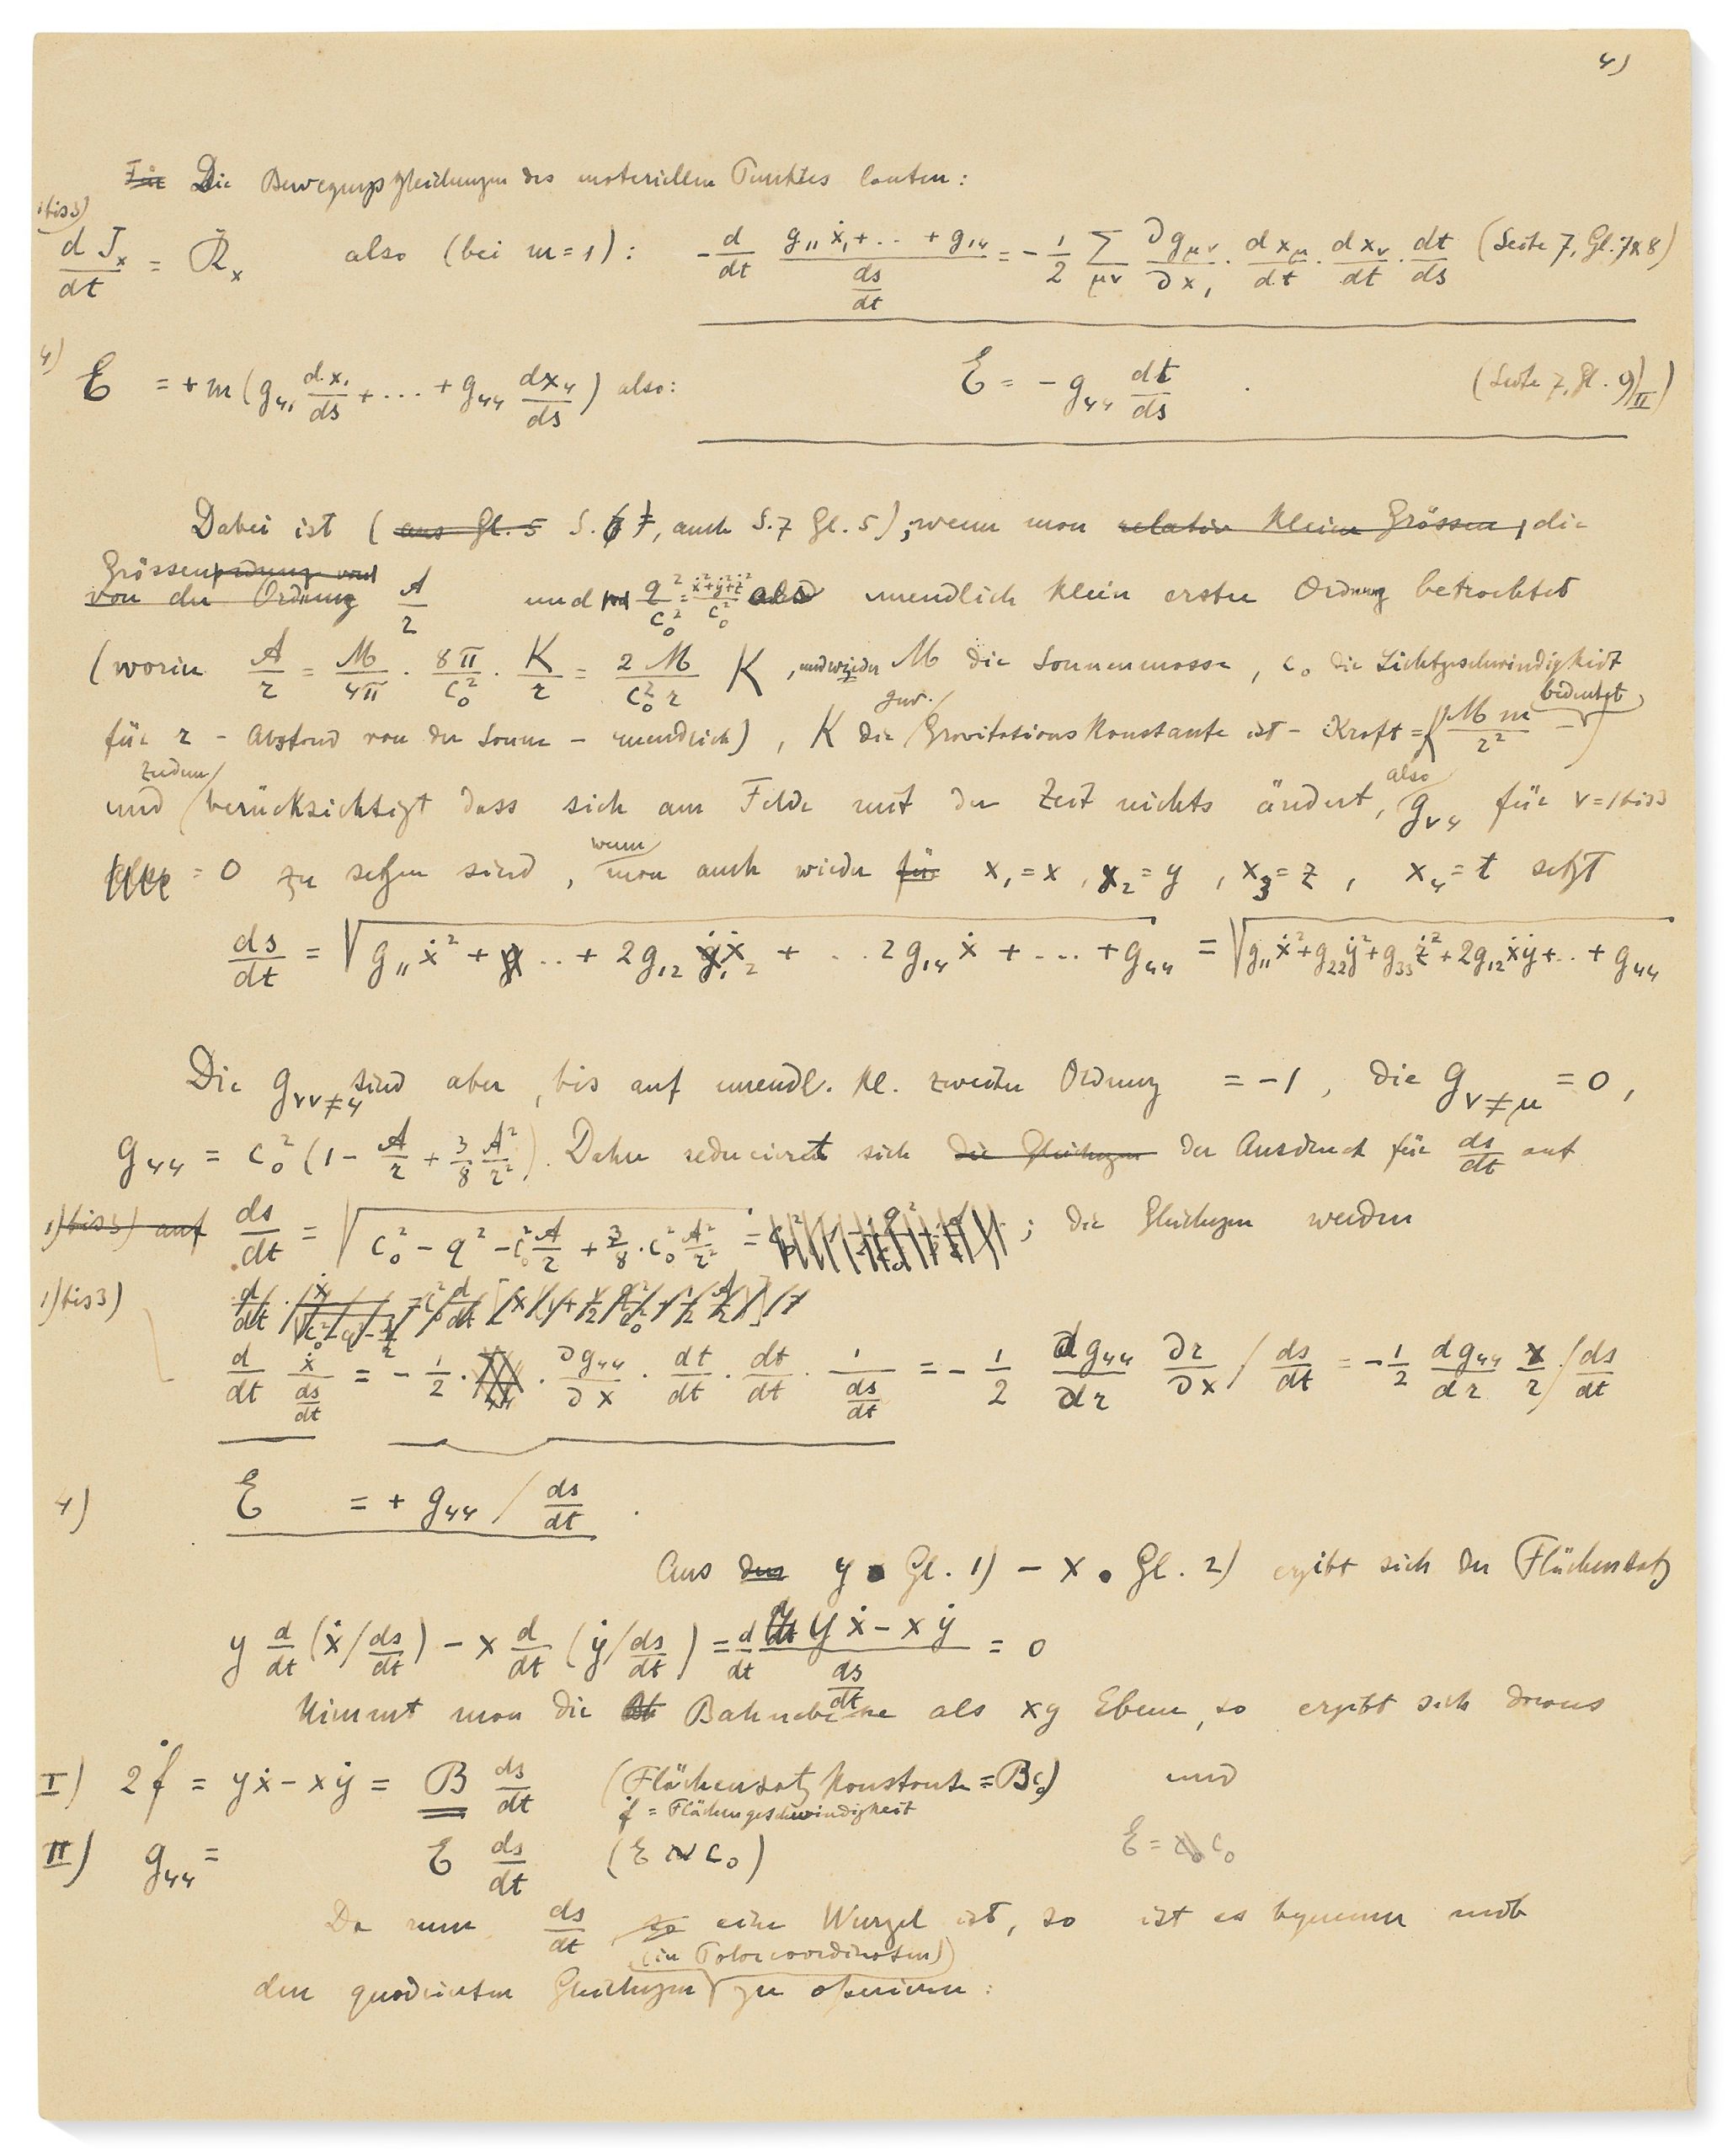 4)
Die Bewegungsgleichungen des materiellen Punktes lauten:
1 bis 3)
dJₓ/dt = 𝔎ₓ also (bei m = 1): − d/dt (g₁₁ẋ₁ + .. + g₁₄)/(ds/dt) = − 1/2 Σ_μν ∂g_μν/∂x₁ · dx_μ/dt · dx_ν/dt · dt/ds (Seite 7, Gl. 7 & 8)
4) E = + m (g₄₁ dx₁/ds + ... + g₄₄ dx₄/ds) also: E = − g₄₄ dt/ds . (Seite 7, Gl. 9) II)
Dabei ist (aus Gl. 5 S. 7, auch S. 7 Gl. 5); wenn man relativ kleine Grössen, die
Grössenordnung von
von der Ordnung A/r und q²/c₀² = (ẋ²+ẏ²+ż²)/c₀² als unendlich klein erster Ordnung betrachtet
(worin A/r = M/4π · 8π/c₀² · K/r = 2M/(c₀² r) K, und wieder M die Sonnenmasse, c₀ die Lichtgeschwindigkeit
gew. bedeutet
für r - Abstand von der Sonne - unendlich), K die Gravitationskonstante ist - Kraft = K M m/r² -)
zudem also
und berücksichtigt dass sich am Felde mit der Zeit nichts ändert, g_ν4 für ν = 1 bis 3
wenn
= 0 zu setzen sind, man auch wieder für x₁ = x, x₂ = y, x₃ = z, x₄ = t setzt
ds/dt = √(g₁₁ẋ² + .. + 2g₁₂ ẋ₁ẋ₂ + .. 2g₁₄ẋ + ... + g₄₄) = √(g₁₁ẋ² + g₂₂ẏ² + g₃₃ż² + 2g₁₂ẋẏ + .. + g₄₄)
Die g_νν≠4 sind aber, bis auf unendl. kl. zweiter Ordnung = −1, die g_ν≠μ = 0,
g₄₄ = c₀² (1 − A/r + 3/8 A²/r²). Daher reducieret sich die Gleichungen der Ausdruck für ds/dt auf
1) bis 3) auf ds/dt = √(c₀² − q² − c₀² A/r + 3/8 · c₀² A²/r²) = ; die Gleichungen werden
1) bis 3)
d/dt ẋ/(ds/dt) = − 1/2 · ∂g₄₄/∂x · dt/dt · dt/dt · 1/(ds/dt) = − 1/2 dg₄₄/dr ∂r/∂x / ds/dt = − 1/2 dg₄₄/dr x/r / ds/dt
4) E = + g₄₄ / ds/dt .
Aus den y • Gl. 1) − x • Gl. 2) ergibt sich der Flächensatz
y d/dt (ẋ / ds/dt) − x d/dt (ẏ / ds/dt) = d/dt (yẋ − xẏ)/(ds/dt) = 0
Nimmt man die Bahnebene als xy Ebene, so ergibt sich daraus
I) 2ḟ = yẋ − xẏ = B ds/dt (Flächensatzkonstante = Bc₀) und
ḟ = Flächengeschwindigkeit
II) g₄₄ = E ds/dt (E ∼ c₀) E = c₀
Da nun ds/dt so eine Wurzel ist, so ist es bequemer mit
(in Polarcoordinaten)
den quadrierten Gleichungen zu operieren: